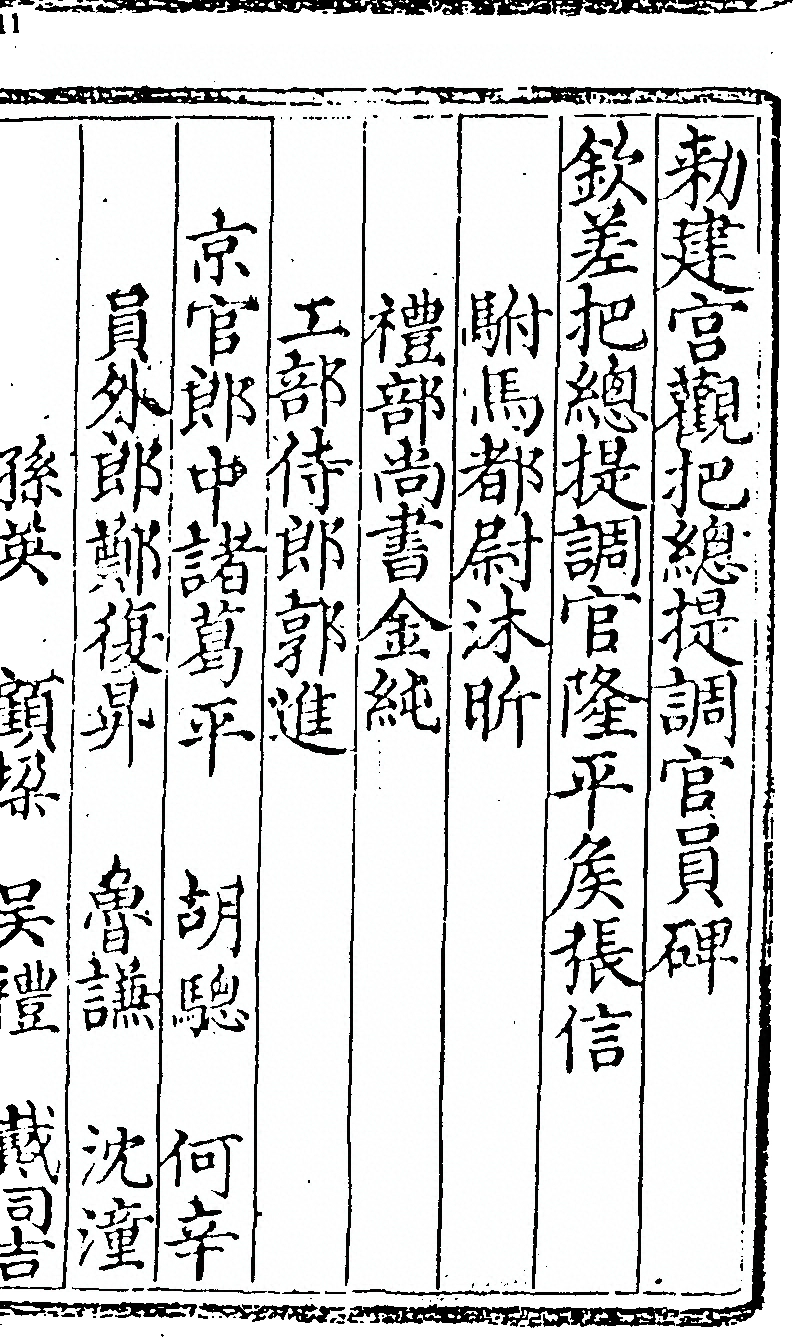 11
勑建宮觀把總提調官員碑
欽差把總提調官隆平侯張信
駙馬都尉沐昕
禮部尚書金純
工部侍郎郭進
京官郎中諸葛平 胡驄 何辛
員外郎鄭復昇 魯謙 沈潼
孫英 顧梁 吴禮 戴同吉